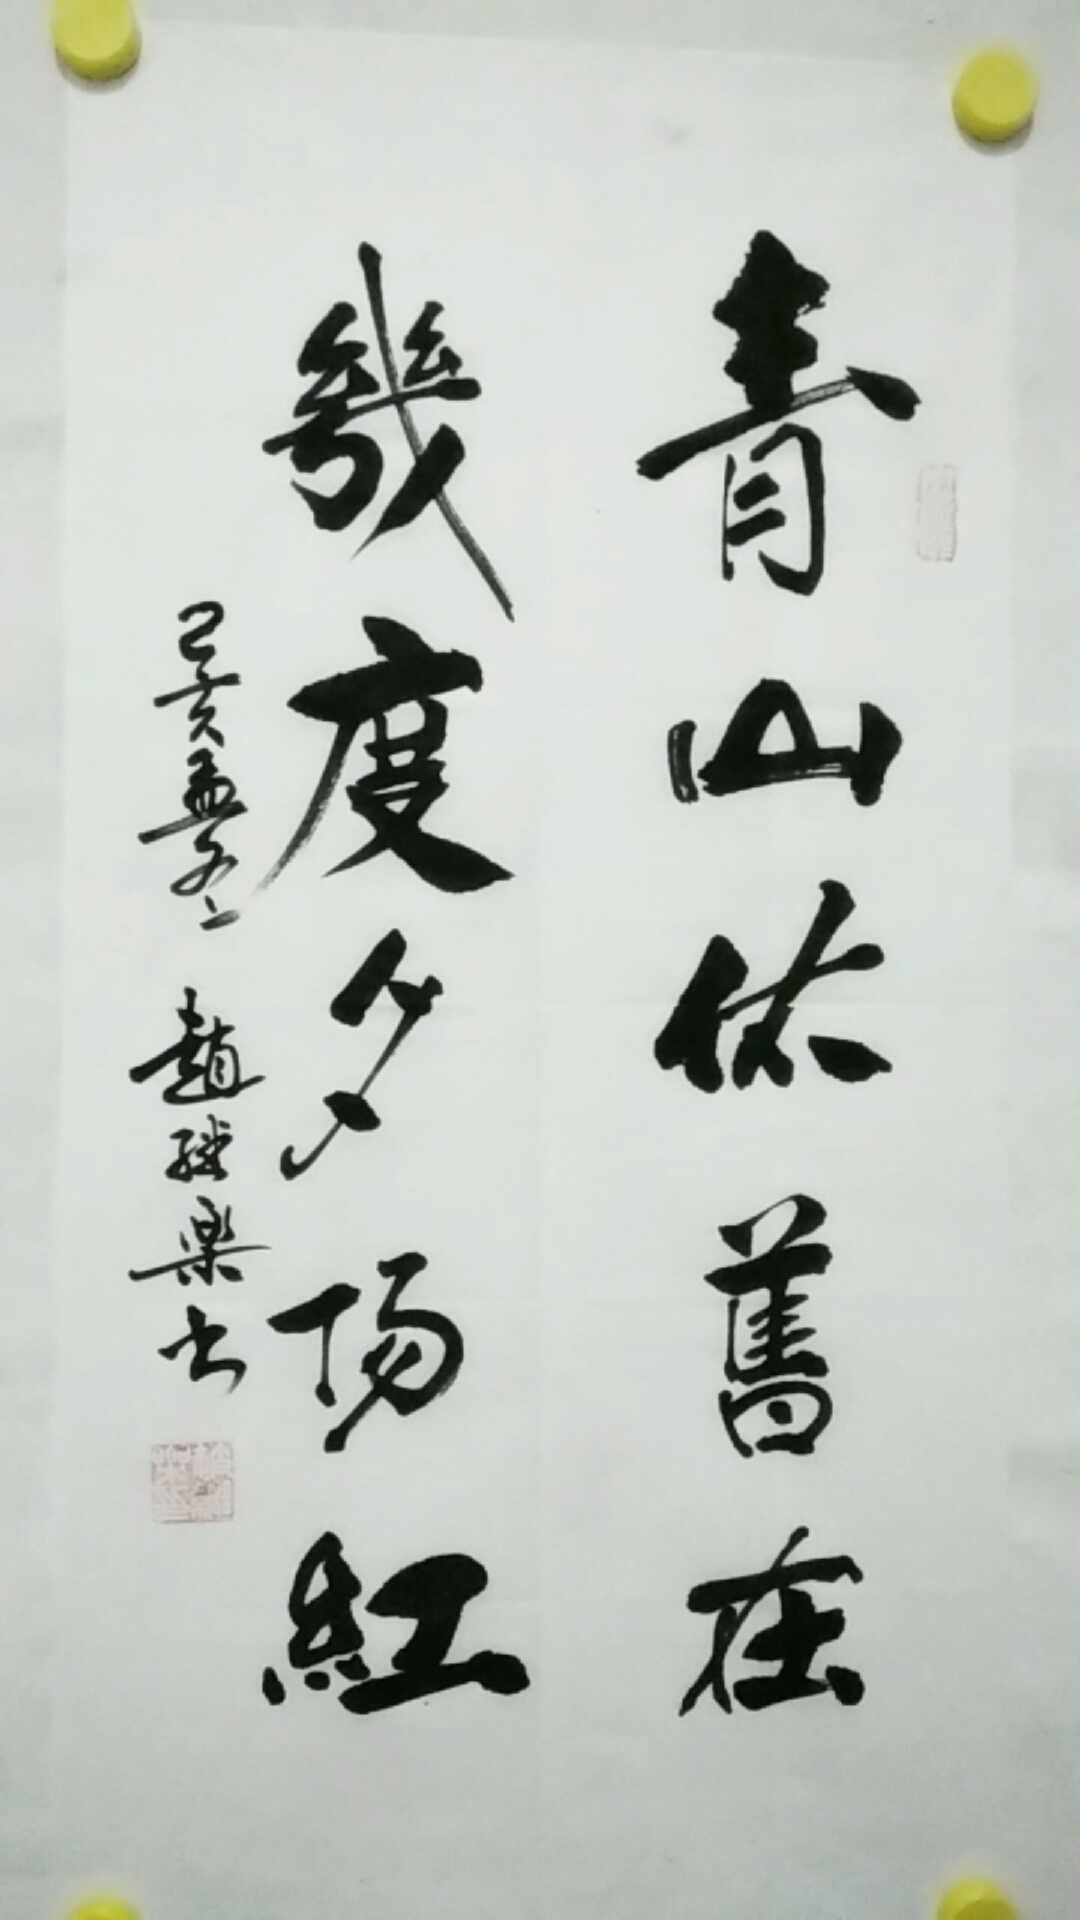 青山依舊在
幾度夕陽紅
己亥孟冬 趙 樂书